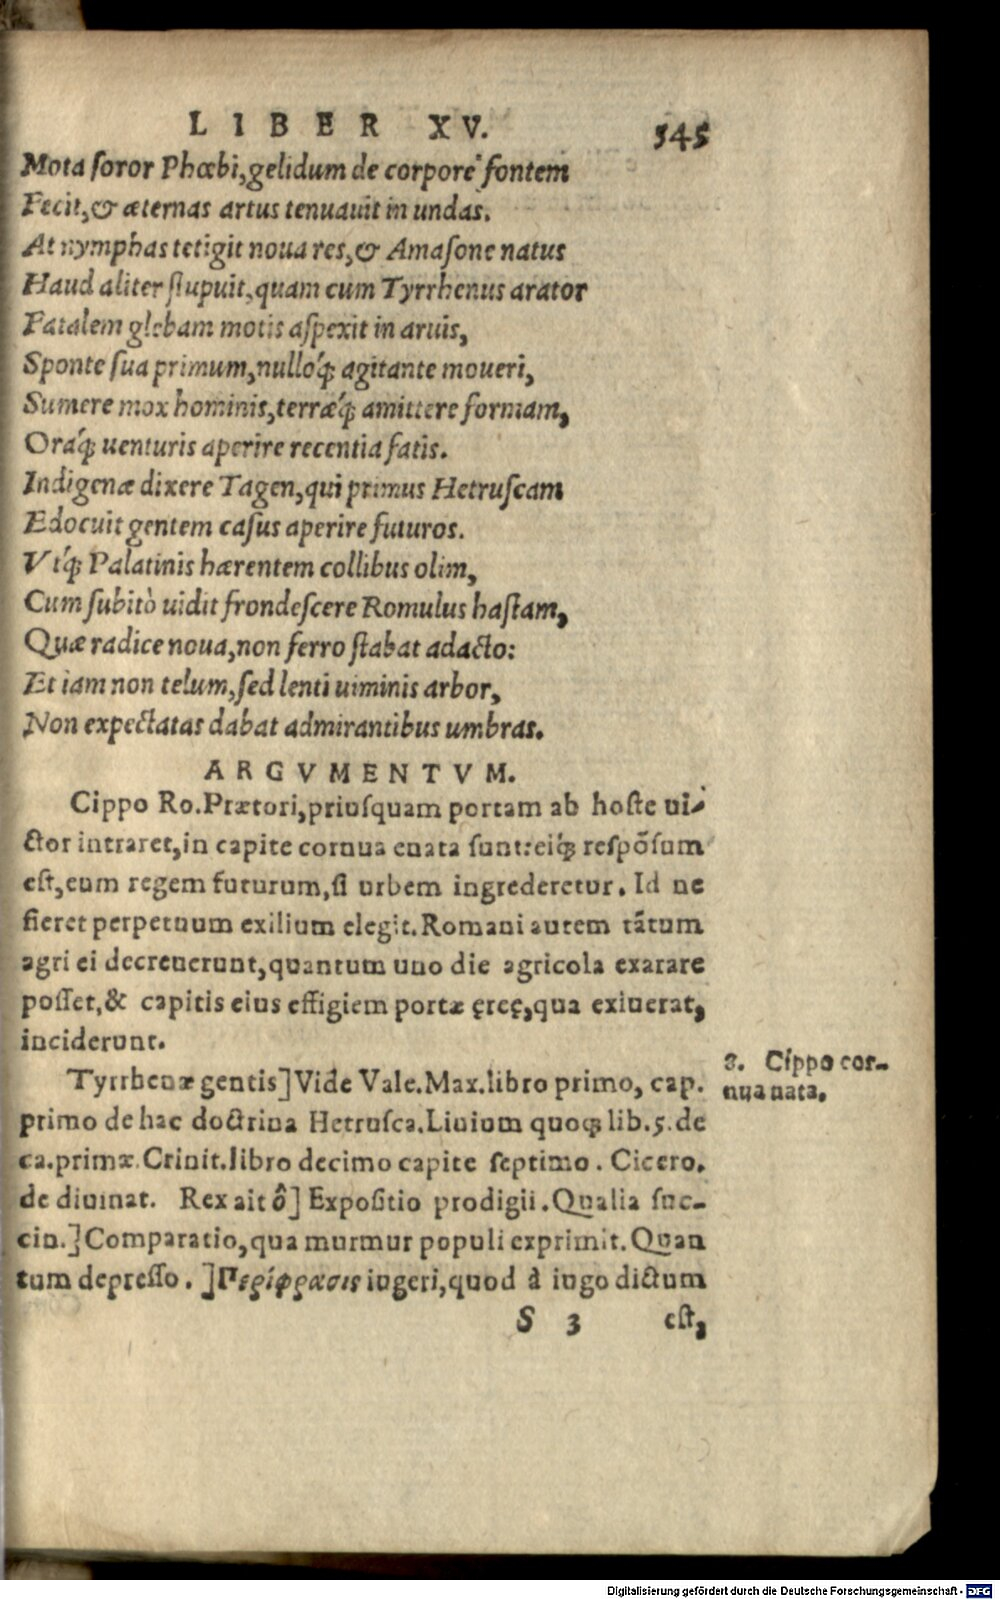 LIBER XV. 545
Mota soror Phœbi, gelidum de corpore fontem
Fecit, & æternas artus tenuauit in undas.
At nymphas tetigit noua res, & Amasone natus
Haud aliter stupuit, quam cum Tyrrhenus arator
Fatalem glebam motis aspexit in aruis,
Sponte sua primum, nulloq́; agitante moueri,
Sumere mox hominis, terræq́; amittere formam,
Oraq́; uenturis aperire recentia fatis.
Indigenæ dixere Tagen, qui primus Hetruscam
Edocuit gentem casus aperire futuros.
Vtq́; Palatinis hærentem collibus olim,
Cum subitò uidit frondescere Romulus hastam,
Quæ radice noua, non ferro stabat adacto:
Et iam non telum, sed lenti uiminis arbor,
Non expectatas dabat admirantibus umbras.
ARGVMENTVM.
Cippo Ro. Prætori, priusquam portam ab hoste ui-
ctor intraret, in capite cornua enata sunt: eiq́; respōsum
est, eum regem futurum, si urbem ingrederetur. Id ne
fieret perpetuum exilium elegit. Romani autem tātum
agri ei decreuerunt, quantum uno die agricola exarare
posset, & capitis eius effigiem portæ ęreę, qua exiuerat,
inciderunt.
Tyrrhenæ gentis] Vide Vale. Max. libro primo, cap.
primo de hac doctrina Hetrusca. Liuium quoq; lib. 5. de
ca. primæ. Crinit. libro decimo capite septimo. Cicero.
de diuinat. Rex ait ô] Expositio prodigii. Qualia suc-
cin.] Comparatio, qua murmur populi exprimit. Quan
tum depresso.] Περίφρασις iugeri, quod à iugo dictum
S 3 est,
8. Cippo cor-
nua nata.
Digitalisierung gefördert durch die Deutsche Forschungsgemeinschaft - DFG